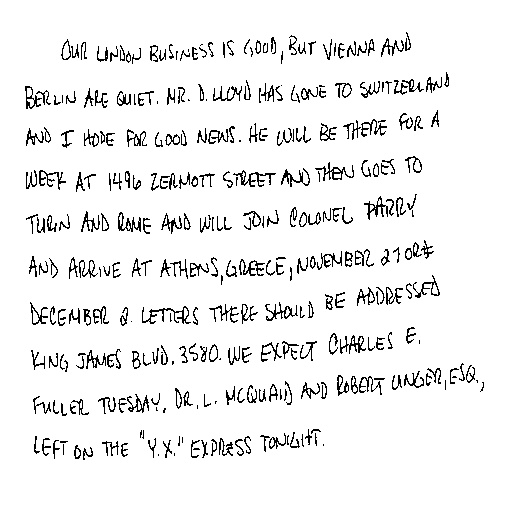 OUR LONDON BUSINESS IS GOOD, BUT VIENNA AND
BERLIN ARE QUIET. MR. D. LLOYD HAS GONE TO SWITZERLAND
AND I HOPE FOR GOOD NEWS. HE WILL BE THERE FOR A
WEEK AT 1496 ZERMOTT STREET AND THEN GOES TO
TURIN AND ROME AND WILL JOIN COLONEL PARRY
AND ARRIVE AT ATHENS, GREECE, NOVEMBER 27 OR
DECEMBER 2. LETTERS THERE SHOULD BE ADDRESSED
KING JAMES BLVD. 3580. WE EXPECT CHARLES E.
FULLER TUESDAY. DR. L. MCQUAID AND ROBERT UNGER, ESQ.,
LEFT ON THE "Y.X." EXPRESS TONIGHT.